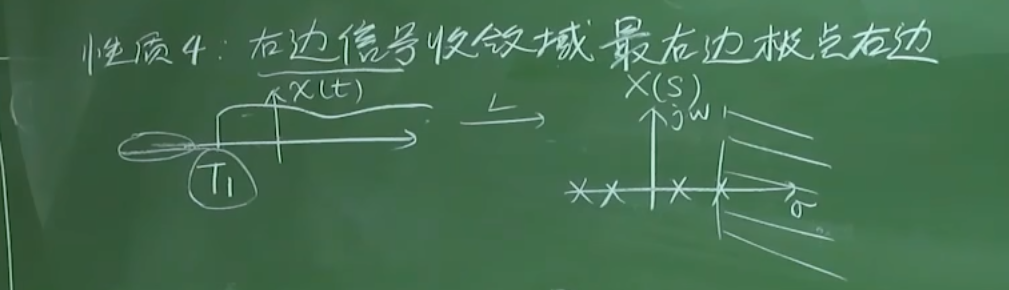 性质4:右边信号收敛域 最右边极点右边
x(t)
L
X(S)
jw
T1
σ